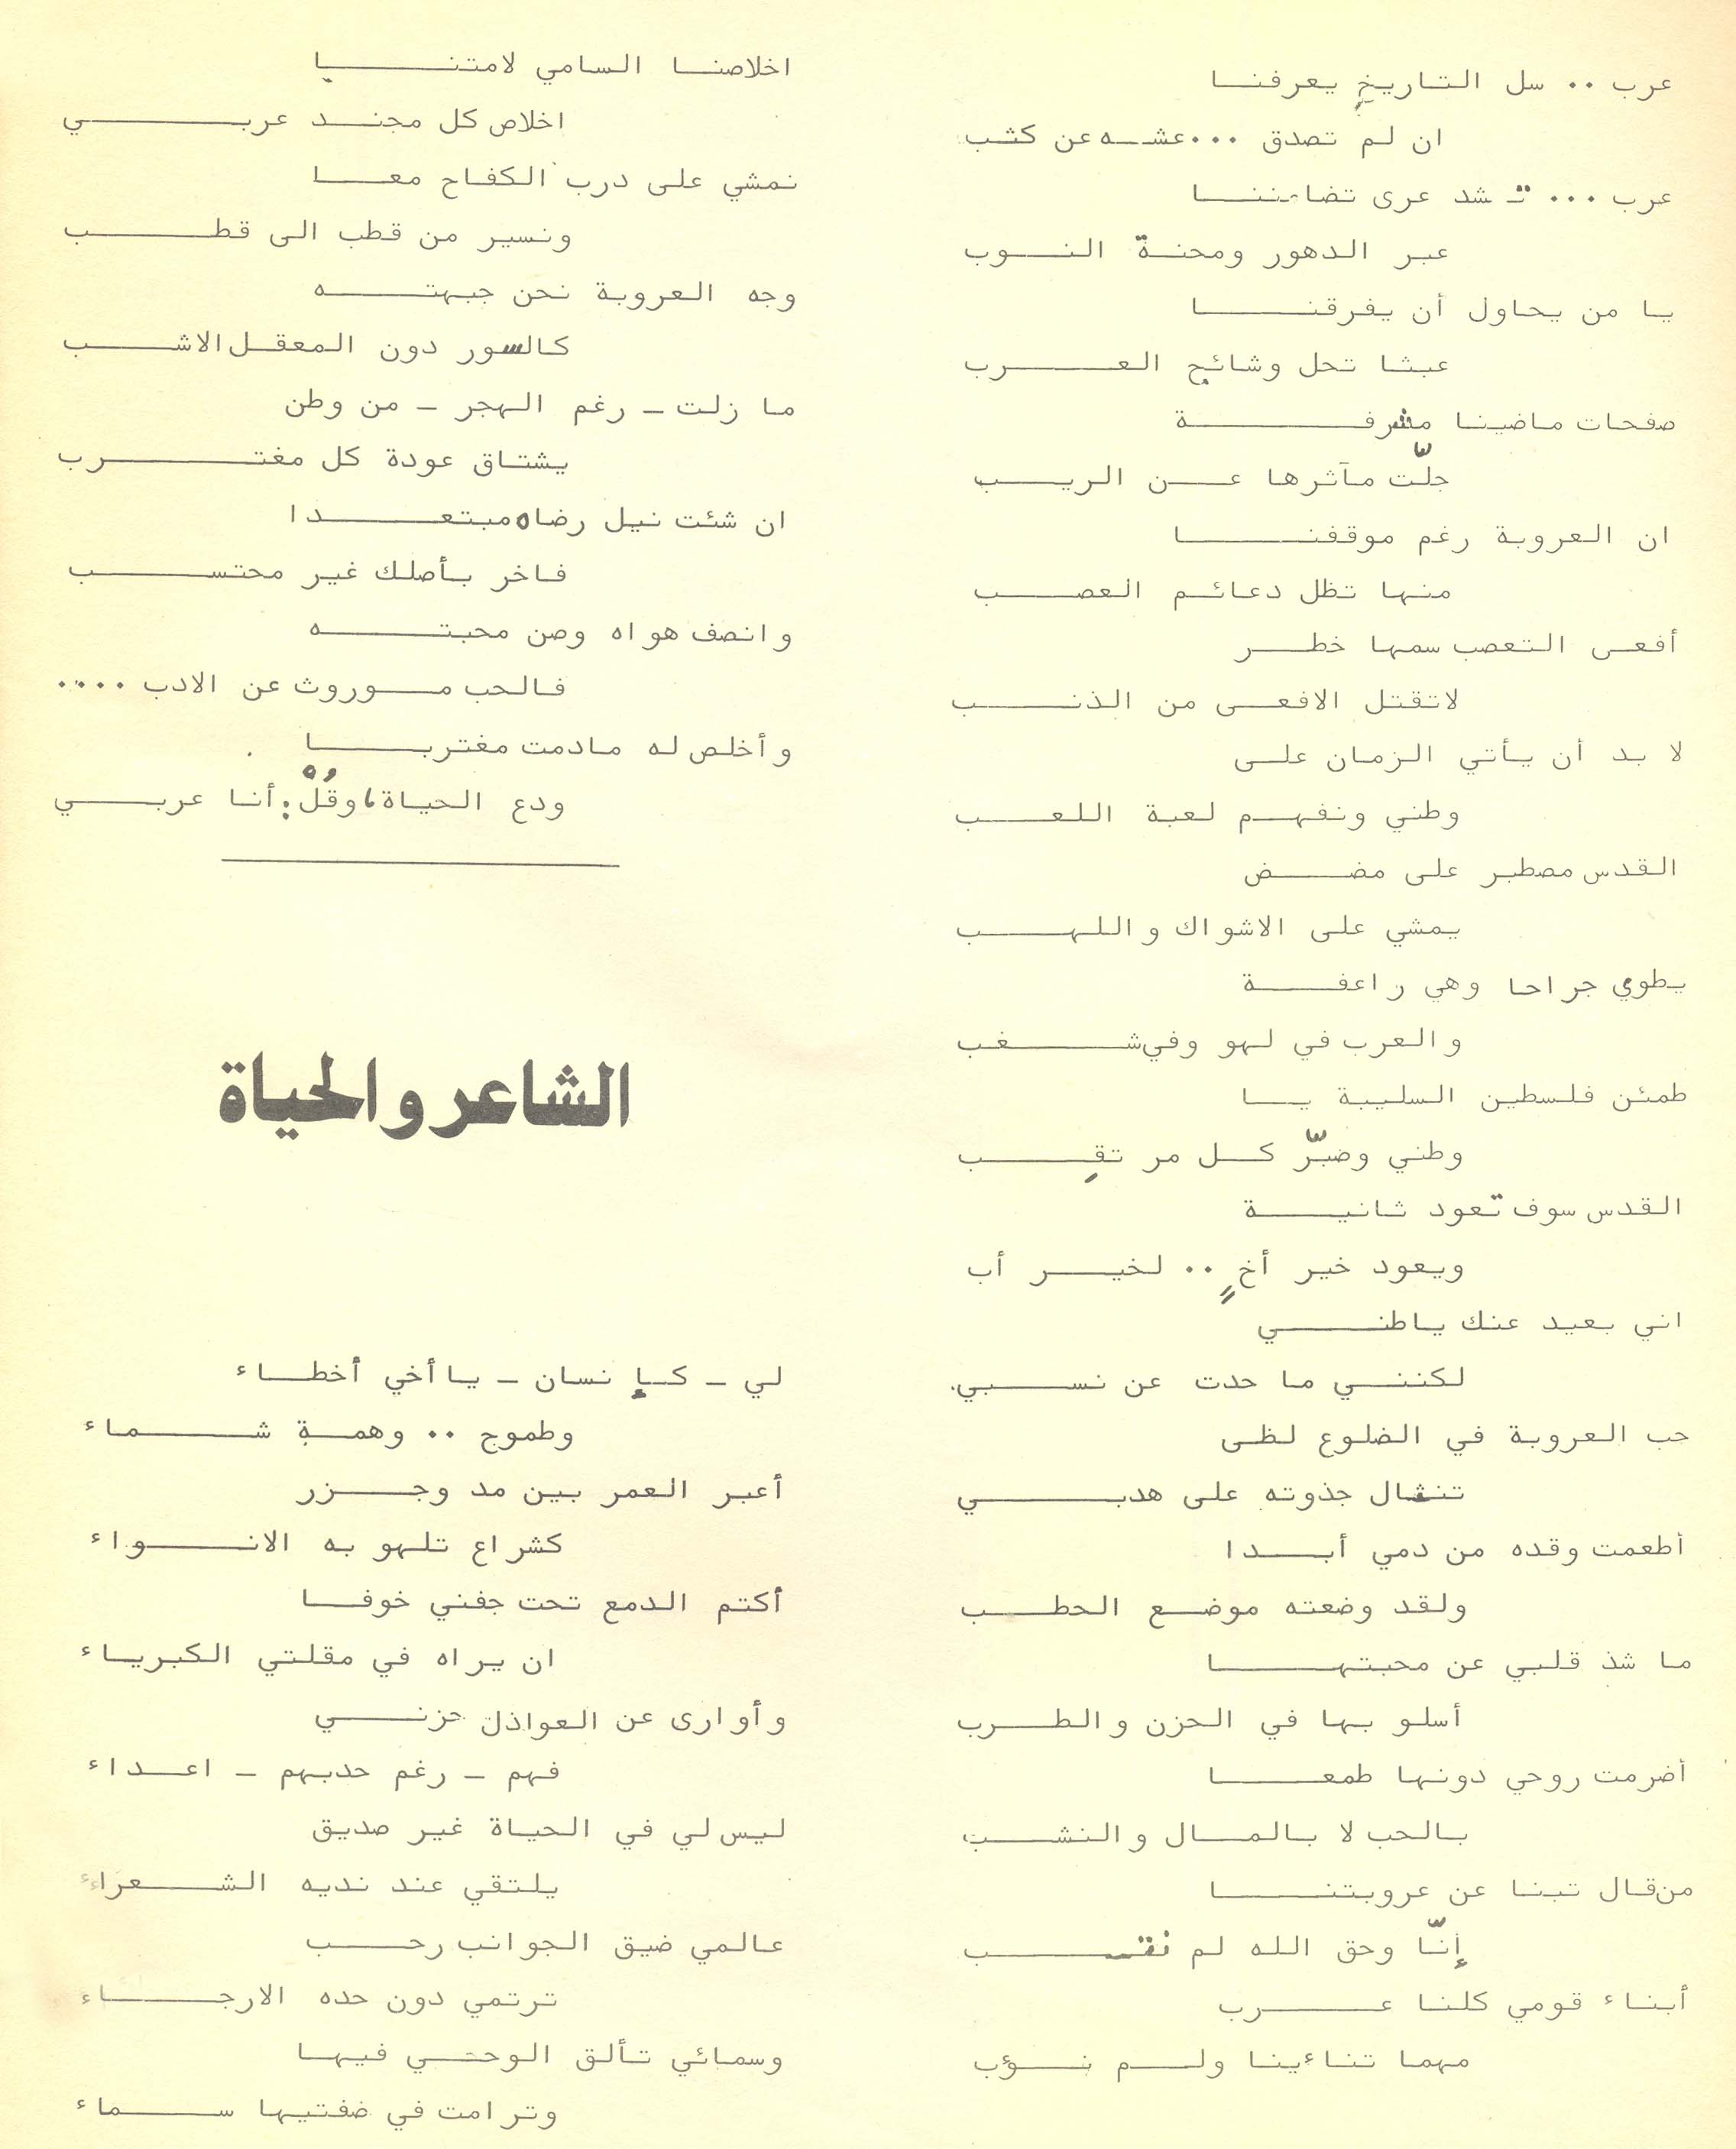 عرب .. سل التاريخِ يعرفنا
ان لم تصدق ... عشه عن كثب
عرب ... تشد عرى تضامننا
عبر الدهور ومحنة النوب
يا من يحاول أن يفرقنا
عبثا تحل وشائج العرب
صفحات ماضينا مشرفة
جلّت مآثرها عن الريب
ان العروبة رغم موقفنا
منها تظل دعائم العصب
أفعى التعصب سمها خطر
لاتقتل الافعى من الذنب
لا بد أن يأتي الزمان على
وطني ونفهم لعبة اللعب
القدس مصطبر على مضض
يمشي على الاشواك واللهب
يطوي جراحا وهي راعفة
والعرب في لهو وفي شغب
طمئن فلسطين السليبة يا
وطني وضبّر كل مر تقِب
القدس سوف تعود ثانية
ويعود خير أخٍ .. لخير أب
اني بعيد عنك ياطني
لكنني ما حدت عن نسبي.
حب العروبة في الضلوع لظى
تنثال جذوته على هدبي
أطعمت وقده من دمي أبدا
ولقد وضعته موضع الحطب
ما شذ قلبي عن محبتها
أسلو بها في الحزن والطرب
أضرمت روحي دونها طمعا
بالحب لا بالمال والنشب
من قال تبنا عن عروبتنا
إنّا وحق الله لم نتب
أبناء قومي كلنا عرب
مهما تناءينا ولم نؤب
اخلاصنا السامي لامتنا
اخلاص كل مجند عربي
نمشي على درب الكفاح معا
ونسير من قطب الى قطب
وجه العروبة نحن جبهته
كالسور دون المعقل الاشب
ما زلت - رغم الهجر - من وطن
يشتاق عودة كل مغترب
ان شئت نيل رضاه مبتعدا
فاخر بأصلك غير محتسب
وانصف هواه وصن محبته
فالحب موروث عن الادب ....
وأخلص له مادمت مغتربا .
ودع الحياة، وقُلْ: أنا عربي
الشاعر والحياة
لي - كإنسان - يا أخي أخطاء
وطموح .. وهمة شماء
أعبر العمر بين مد وجزر
كشراع تلهو به الانواء
أكتم الدمع تحت جفني خوفا
ان يراه في مقلتي الكبرياء
وأوارى عن العواذل حزني
فهم - رغم حدبهم - اعداء
ليس لي في الحياة غير صديق
يلتقي عند نديه الشعراء
عالمي ضيق الجوانب رحب
ترتمي دون حده الارجاء
وسمائي تألق الوحي فيها
وترامت في ضفتيها سماء